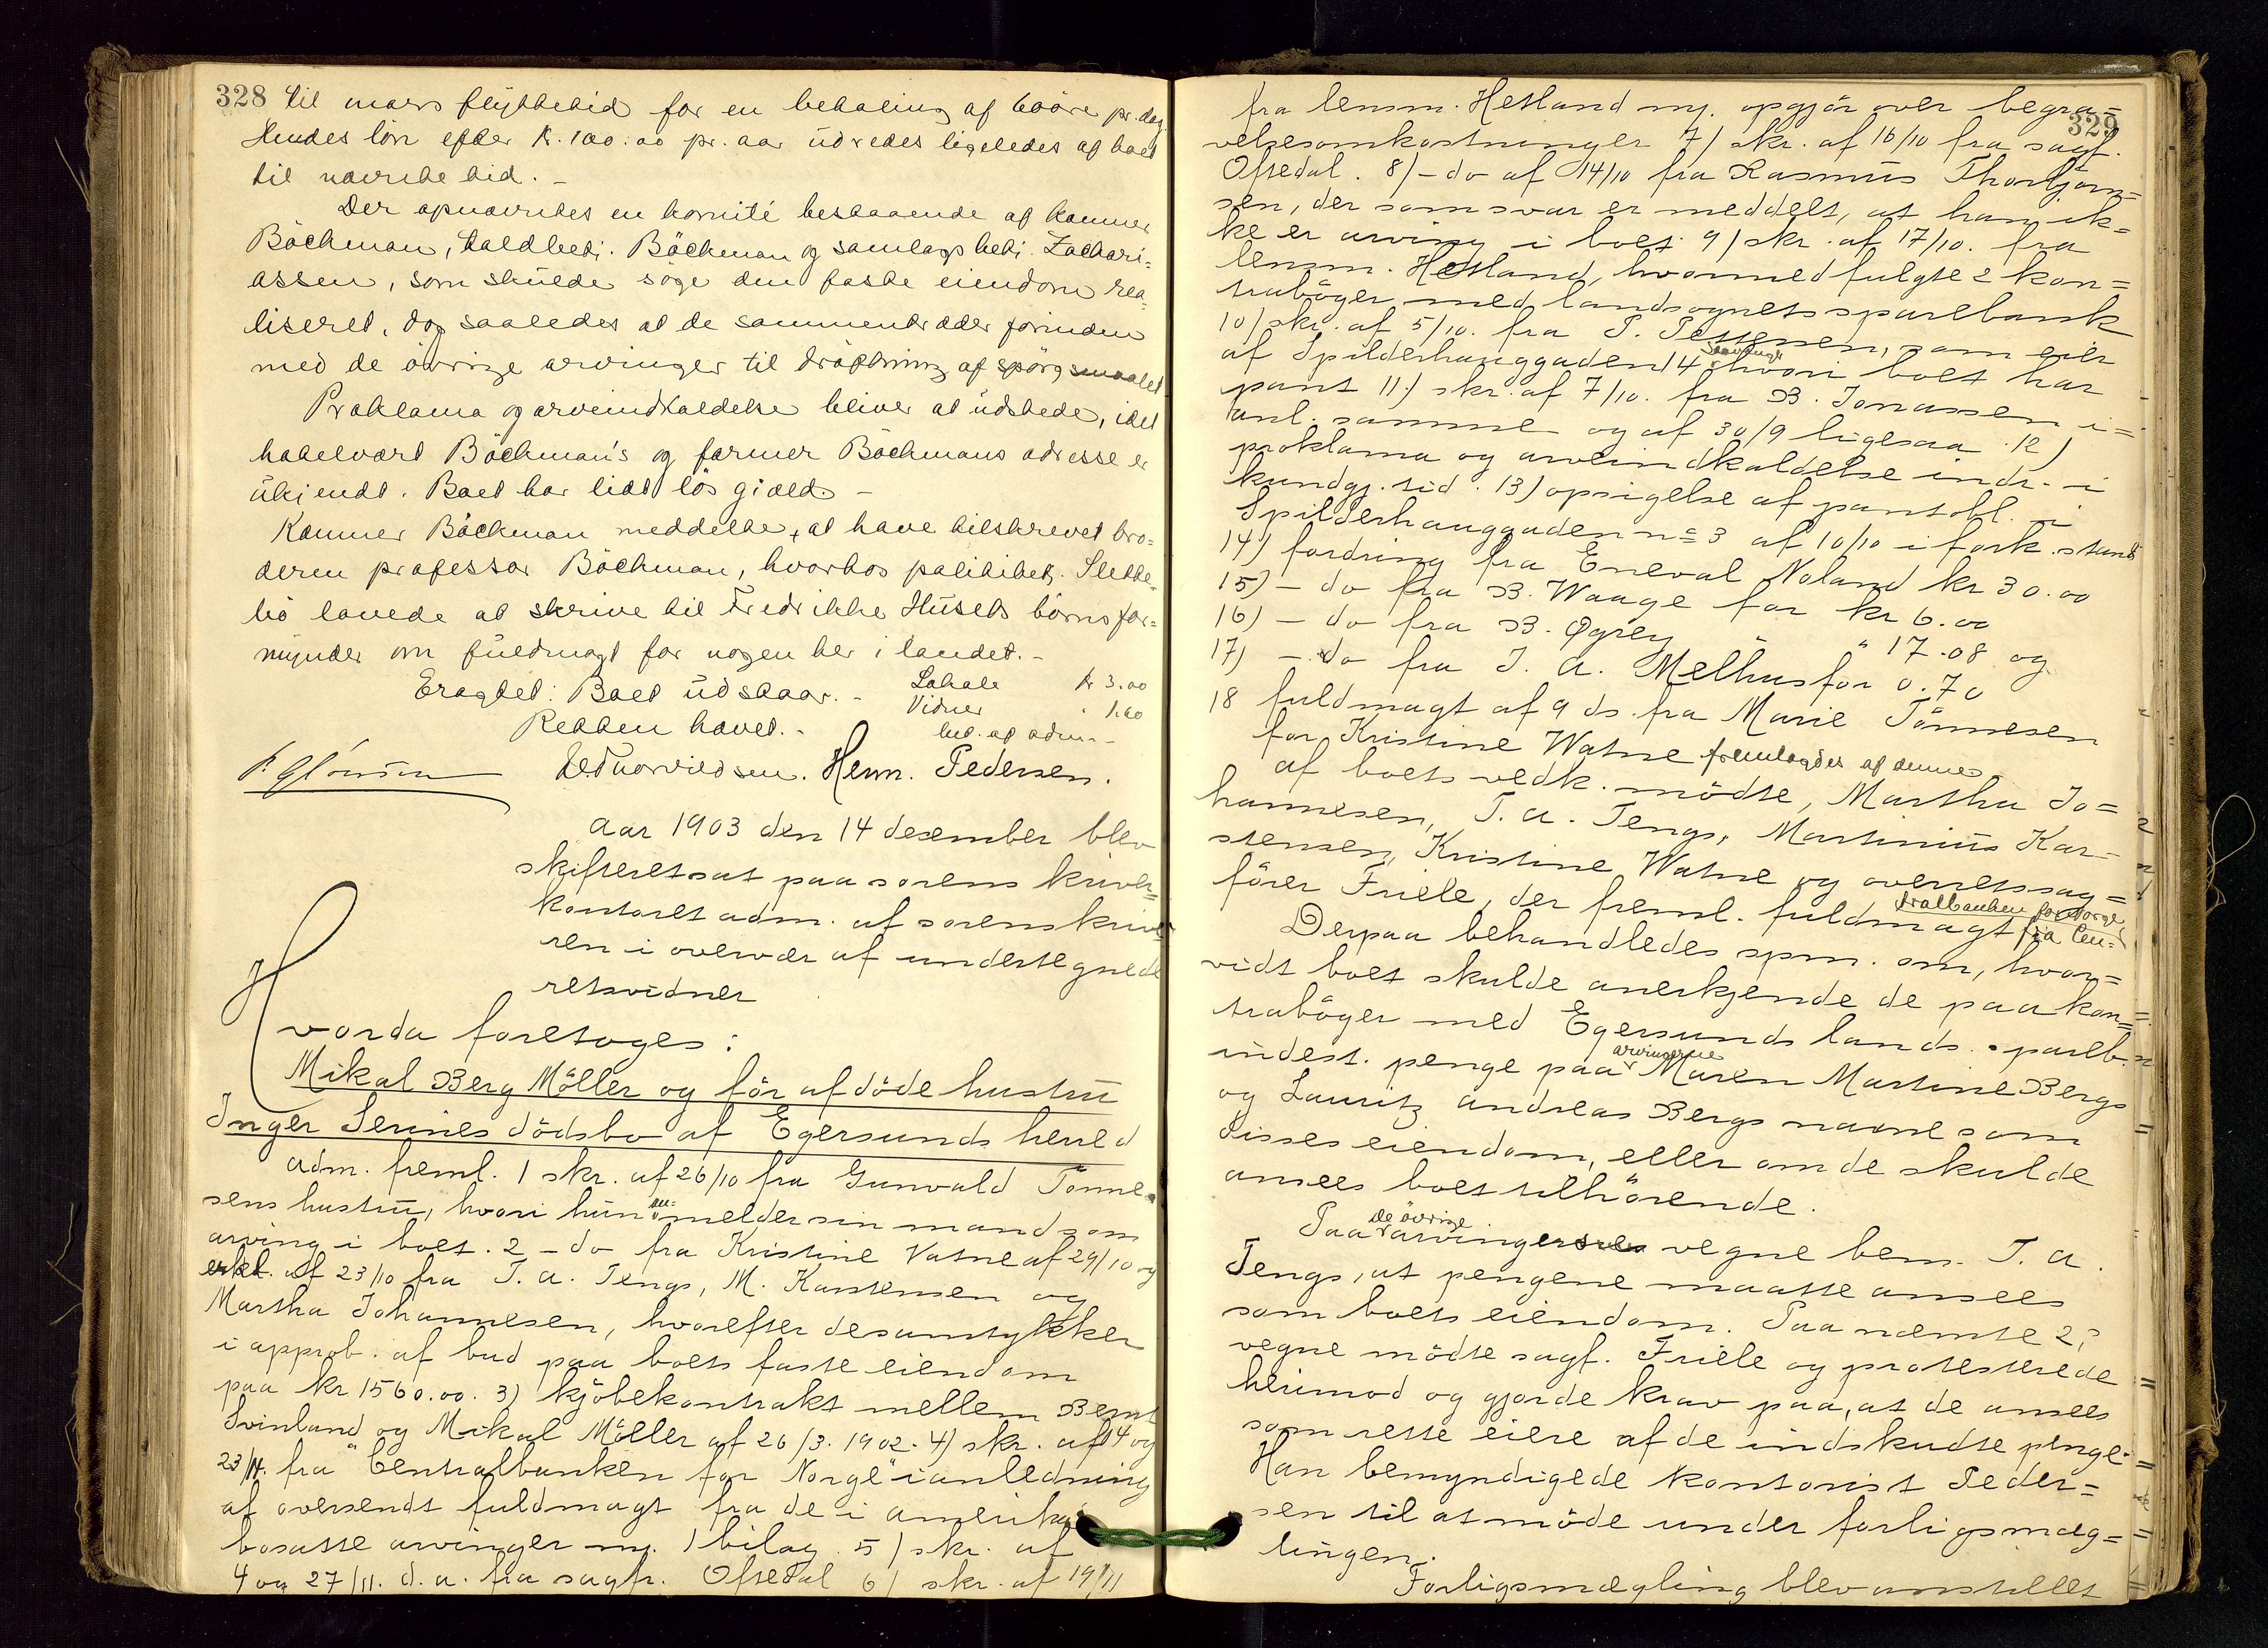 328 til mars flyttetid for en betaling af 60 øre pr. dag.
Hendes løn efter k. 100.00 pr. aar udredes ligeledes af boet
til nævnte tid. –
Der opnævntes en komité bestaaende af kanner
Böckman, toldbetj. Böckman og samlagsbetj. Zachari=
assen, som skulde söge den faste eiendom rea=
liseret, dog saaledes at de sammentræder forinden
med de övrige arvinger til dröftning af spörgsmaalet
Proklama og arveindkaldelse bliver at udstede, idet
hotelvært Böckman's og farmer Böckmans adresse er
ukjendt. Boet har lidt lös gjæld. –
Kanner Böckman meddelte, at have tilskrevet bro=
deren professor Böckman, hvorhos politibetj. Slette=
bö lovede at skrive til Fredrikke Husets börns for=
mynder om fuldmagt for nogen her i landet. –
Eragtet: Boet udstaar. – Lokale k 3.00
Vidner " 1.60
Retten hævet. – bet. af adm. –
Herm. Pedersen.
Aar 1903 den 14 desember blev
skifteret sat paa sorenskriver=
kontoret adm. af sorenskrive=
ren i overvær af undertegnede
retsvidner
Hvorda foretoges:
Mikal Berg Möller og för afdöde hustru
Inger Serines dödsbo af Egersunds herred
Adm. freml. 1 skr. af 26/10 fra Gunvald Tönne=
sens hustru, hvori hun an=melder sin mand som
arving i boet. 2 – do fra Kristine Vatne af 29/10 og
erkl. af 23/10 fra T. A. Tengs, M. Karstensen og
Martha Johannesen, hvorefter de samtykker
i approb. af bud paa boets faste eiendom
paa kr 1560.00. 3) kjöbekontrakt mellem Bernt
Svinland og Mikal Möller af 26/3. 1902. 4) skr. af 14 og
23/11. fra "Centralbanken for Norge" i anledning
af oversendt fuldmagt fra de i Amerika
bosatte arvinger m. 1 bilag. 5) skr. af
4 og 27/11. d. a. fra sagfr. Ofsedal 6) skr. af 19/11
329
fra lensm. Hetland m. opgjör over begra=
velsesomkostninger 7) skr. af 16/10 fra sagf.
Ofsedal. 8) – do af 14/10 fra Rasmus Thorbjörn=
sen, der som svar er meddelt, at han ik=
ke er arving i boet. 9) skr. af 17/10. fra
lensm. Hetland, hvormed fulgte 2 kon=
trabøger med landsognets sparebank
10) skr. af 5/10. fra P. Pettersen, som eier
af Spilderhauggaden 14 hvori boet har
pant 11) skr. af 7/10. fra B. Jonassen i=
anl. samme og af 30/9 ligesaa. 12)
proklama og arveindkaldelse indr. i
kundgj. tid. 13) opsigelse af pantobl. i
Spilderhauggaden no 3 af 10/10 i fork. stand
14) fordring fra Eneval Noland kr 30.00
15) – do fra B. Waage for kr 6.00
16) – do fra B. Øgrey " 17.08 og
17) – do fra J. A. Melhus for 0.70
18 fuldmagt af 9 ds. fra Marie Tönnesen
for Kristine Watne fremlagdes af denne
af boets vedk. mödte, Martha Jo=
hannesen, T. A. Tengs, Martinius Kar=
stensen, Kristine Watne og overretssag=
förer Friele, der freml. fuldmagt fra Cen=
tralbanken for Norge
Derpaa behandledes spm. om, hvor=
vidt boet skulde anerkjende de paa kon=
trabøger med Egersunds lands. spareb.
indest. penge paa arvingerne Maren Martine Bergs
og Lauritz Andreas Bergs navne som
disses eiendom, eller om de skulde
ansees boet tilhörende.
Paa de övrige arvingers vegne bem. T. A.
Tengs, at pengene maatte ansees
som boets eiendom. Paa nævnte 2s
vegne mödte sagf. Friele og protesterede
herimod og gjorde krav paa, at de ansees
som rette eiere af de indskudte penge.
Han bemyndigede kontorist Peder=
sen til at möde under forligsmæg=
lingen.
Forligsmægling blev anstillet